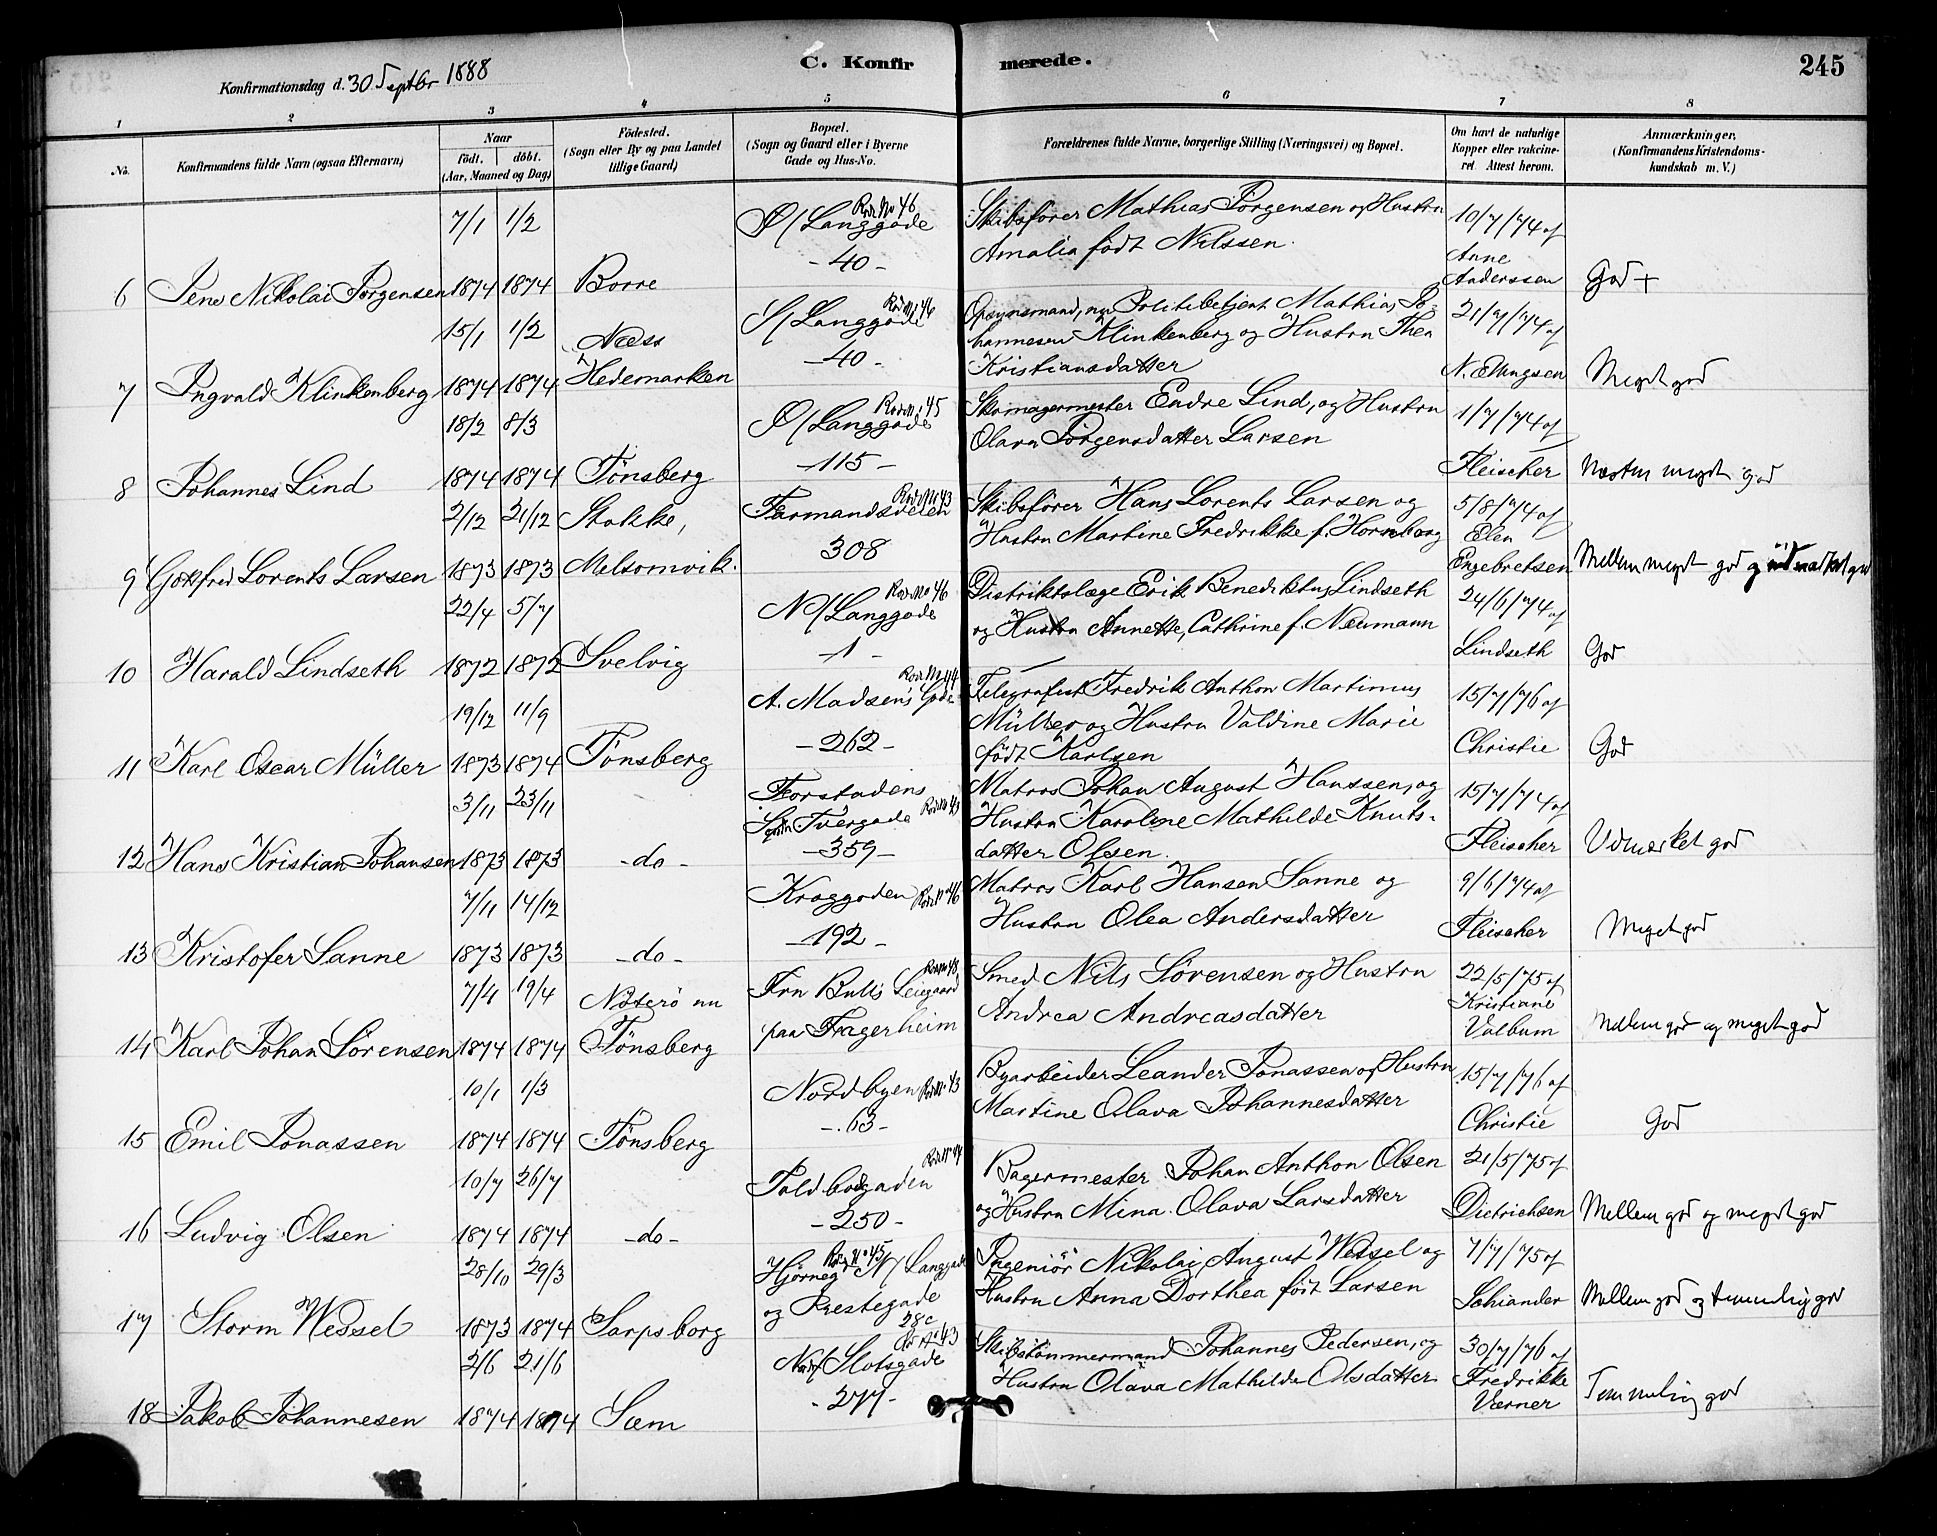 Konfirmationsdag d. 30 Septbr 1888
C. Konfirmerede.
245
1 2 3 4 5 6 7 8
No.
Konfirmandens fulde Navn (ogsaa Efternavn)
Naar
födt. döbt.
(Aar, Maaned og Dag)
Födested.
(Sogn eller By og paa Landet
tillige Gaard)
Bopæl.
(Sogn og Gaard eller i Byerne
Gade og Hus-No.
Forældrenes fulde Navne, borgerlige Stilling (Næringsvei) og Bopæl.
Om havt de naturlige
Kopper eller vakcine-
ret. Attest herom.
Anmærkninger.
(Konfirmandens Kristendoms-
kundskab m. V.)
6 Jens Nikolai Jörgensen
7/1 1/2
1874 1874
Borre
Rode No 46
Ø/Langgade
- 40 -
Skibsförer Mathias Jörgensen og Hustru
Amalia födt Nilssen.
10/7/74 af
Anne
Anderssen
God +
7 Ingvald Klinkenberg
15/1 1/2
1874 1874
Næss
Hedemarken
Rode No 46
S/Langgade
- 40 -
Opsynsmand, nu Politibetjent Mathias Jo-
hannesen Klinkenberg og Hustru Thea
Kristiansdatter
21/7/74 af
N. Ellingsen
Meget god
8 Johannes Lind
18/2 8/3
1874 1874
Tönsberg
Rode No 45
Ø/Langgade
- 115 -
Skomagermester Endre Lind, og Hustru
Olava Jörgensdatter Larsen
1/7/74 af
Fleischer
Næsten meget god
9 Gotfred Lorents Larsen
2/12 21/12
1873 1873
Stokke,
Melsomvik.
Rode No 43
Farmandsveien
308
Skibsförer Hans Lorents Larsen og
Hustru Martine Fredrikke f. Hornborg
5/8/74 af
Elen
Engebretsen
Mellem meget god og udmærket god
10 Harald Lindseth
22/4 5/7
1872 1872
Svelvig
Rode No 46
N/Langgade
- 1 -
Distriktslæge Erik Benediktus Lindseth
og Hustru Annette, Cathrine f. Neumann
24/6/74 af
Lindseth
God
11 Karl Oscar Müller
19/12 11/9
1873 1874
Tönsberg
Rode No 44
A. Madsens Gade
- 262 -
Telegrafist Fredrik Anthon Martinius
Müller og Hustru Valdine Marie
födt Karlsen
15/7/76 af
Christie
God
12 Hans Kristian Johansen
3/11 23/11
1873 1873
- do -
Forstadens
Tvergade Rode No 43
- 359 -
Matros Johan August Hanssen, og
Hustru Karoline Mathilde Knuts-
datter Olsen.
15/7/74 af
Fleischer
Udmærket god
13 Kristofer Sanne
7/11 14/12
1873 1873
- do -
Kroggaden Rode No 46
- 192 -
Matros Karl Hansen Sanne og
Hustru Olea Andersdatter
9/6/74 af
Fleischer
Meget god
14 Karl Johan Sörensen
7/4 19/4
1874 1874
Nöterö nu
Tönsberg
Fru Bulls Leiegaard
paa Fagerheim
Smed Nils Sörensen og Hustru
Andrea Andreasdatter
22/5/75 af
Kristiane
Valbum
Mellem god og meget god
15 Emil Jonassen
10/1 1/3
1874 1874
Tönsberg
Nordbyen Rode No 43
- 63 -
Byarbeider Leander Jonassen og Hustru
Martine Olava Johannesdatter
15/7/76 af
Christie
God
16 Ludvig Olsen
10/7 26/7
1874 1874
- do -
Rode No 44
Toldbodgaden
- 250 -
Bagermester Johan Anthon Olsen
og Hustru Mina Olava Larsdatter
21/5/75 af
Dietrichsen
Mellem god og meget god
17 Storm Wessel
28/10 29/3
1873 1874
Sarpsborg
Rode No 45
Hjörneg N/Langgade
og Prestegade
28c
Ingeniör Nikolai August Wessel og
Hustru Anna Dorthea födt Larsen
7/7/75 af
Schiander
Mellem god og temmelig god
18 Jakob Johannesen
2/6 21/6
1874 1874
Sem
Rode No 43
Slotsgade
- 277 -
Skibstömmermand Johannes Pedersen, og
Hustru Olava Mathilde Olsdatter
30/7/76 af
Fredrikke
Værner
Temmelig god